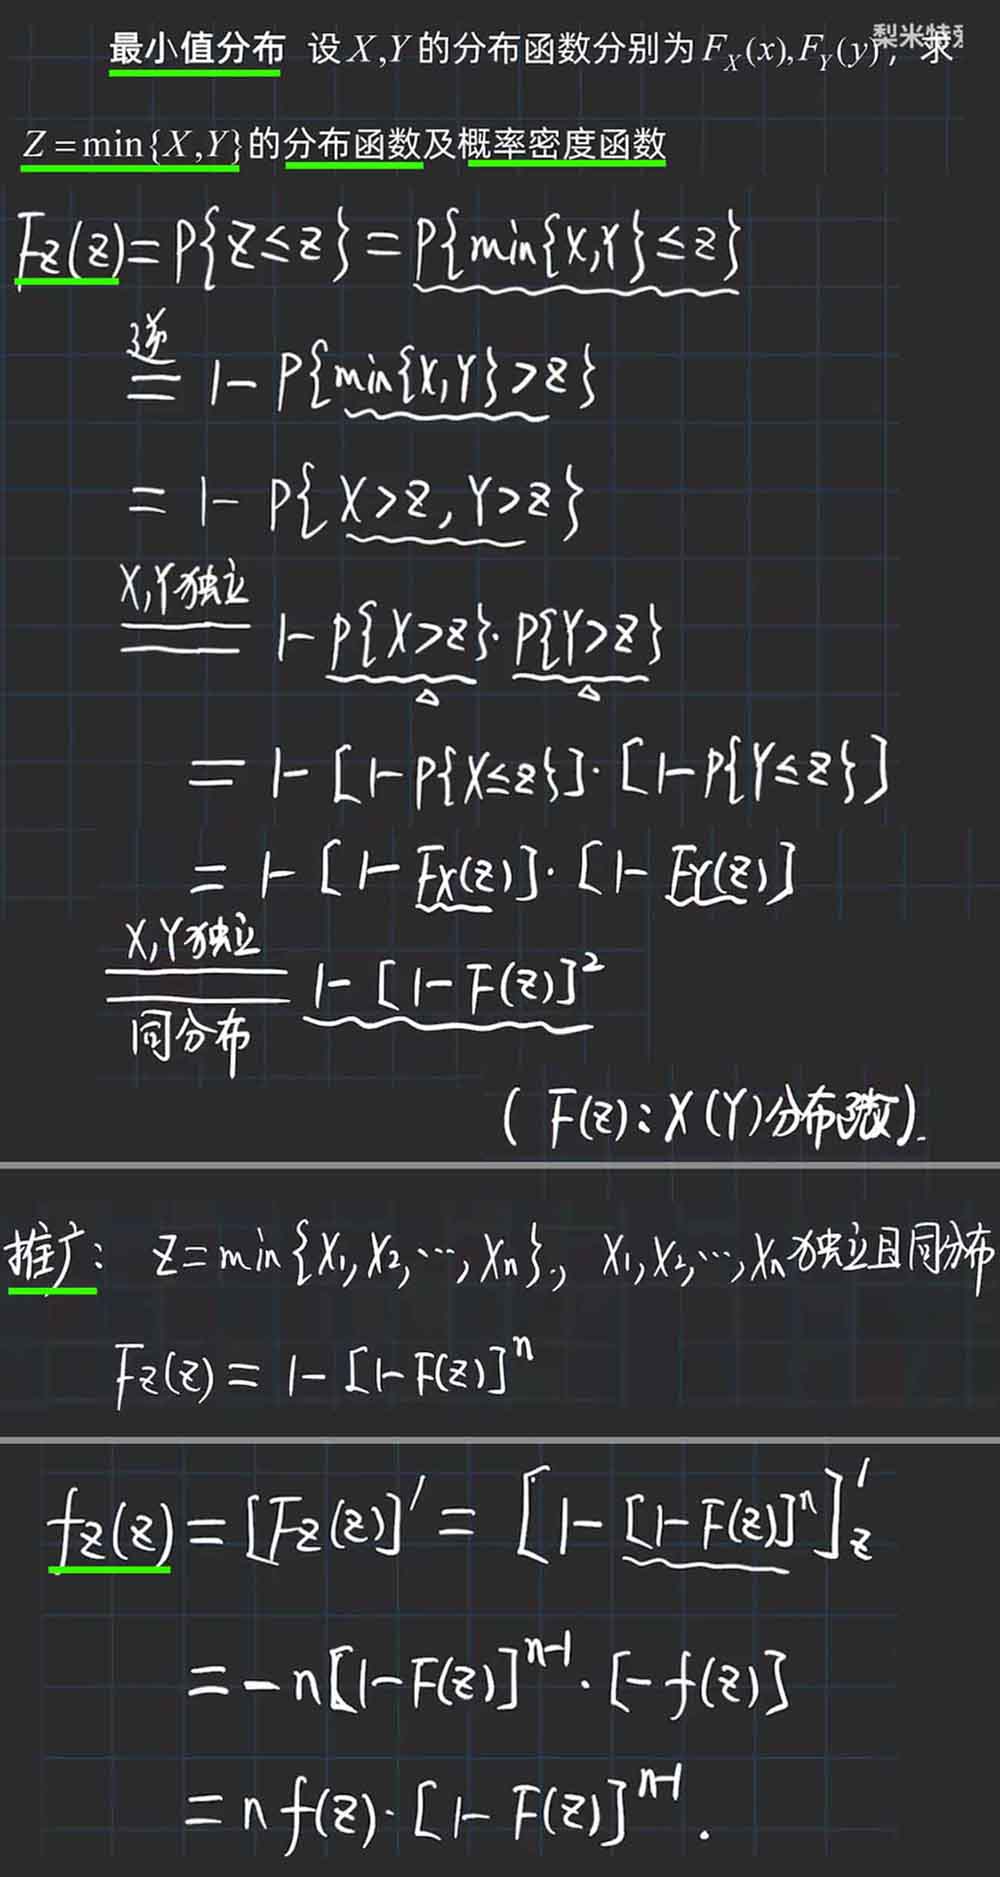 最小值分布 设X,Y的分布函数分别为F_X(x),F_Y(y),求
梨米特
Z=min{X,Y}的分布函数及概率密度函数
F_Z(z)=P{Z≤z}=P{min{X,Y}≤z}
逆
= 1-P{min{X,Y}>z}
= 1-P{X>z,Y>z}
X,Y独立
= 1-P{X>z}·P{Y>z}
= 1-[1-P{X≤z}]·[1-P{Y≤z}]
= 1-[1-F_X(z)]·[1-F_Y(z)]
X,Y独立
= 1-[1-F(z)]²
同分布
(F(z):X(Y)分布函数).
推广: Z=min{X₁,X₂,…,Xₙ}., X₁,X₂,…,Xₙ独立且同分布
F_Z(z)=1-[1-F(z)]ⁿ
f_Z(z)=[F_Z(z)]′=[1-[1-F(z)]ⁿ]′_z
=-n[1-F(z)]ⁿ⁻¹·[-f(z)]
=nf(z)·[1-F(z)]ⁿ⁻¹.